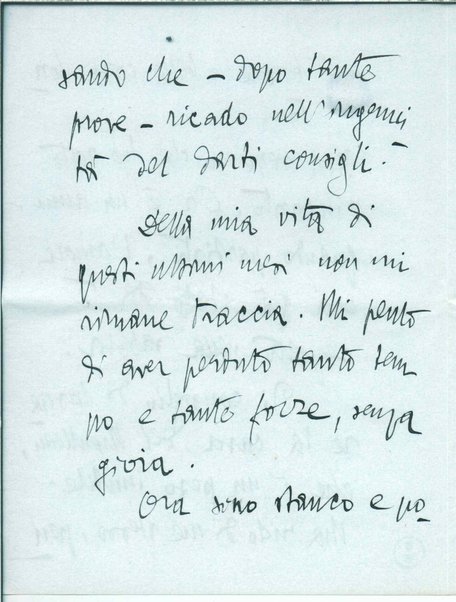 sando che - dopo tante
prove - ricado nell'ingenui
tà del darti consigli. -
Della mia vita di
questi ultimi mesi non mi
rimane traccia. Mi pento
di aver perduto tanto tem
po e tante forze, senza
gioia.
Ora sono stanco e po-